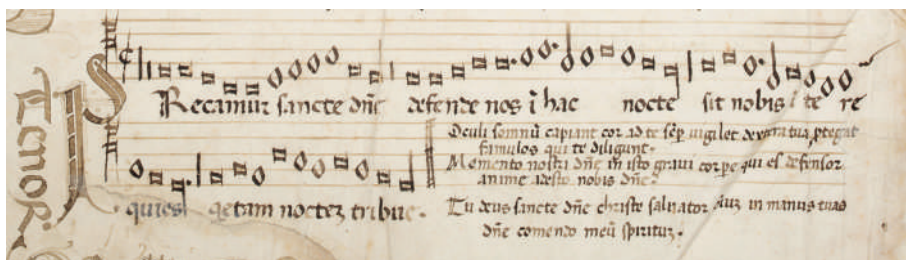 Tenor
PRecamur sancte dñe defende nos ĩ hac nocte sit nobis ĩ te re
Oculi somnũ capiant cor ad te sẽp vigilet dextera tua ptegat
famulos qui te diligunt.
Memento nostri dñe in isto gravi corpe qui es defensor
anime adesto nobis dñe.
quies qetam noctez tribue.
Tu deus sancte dñe christe salvator in manus tuas
dñe comendo meũ spirituz.